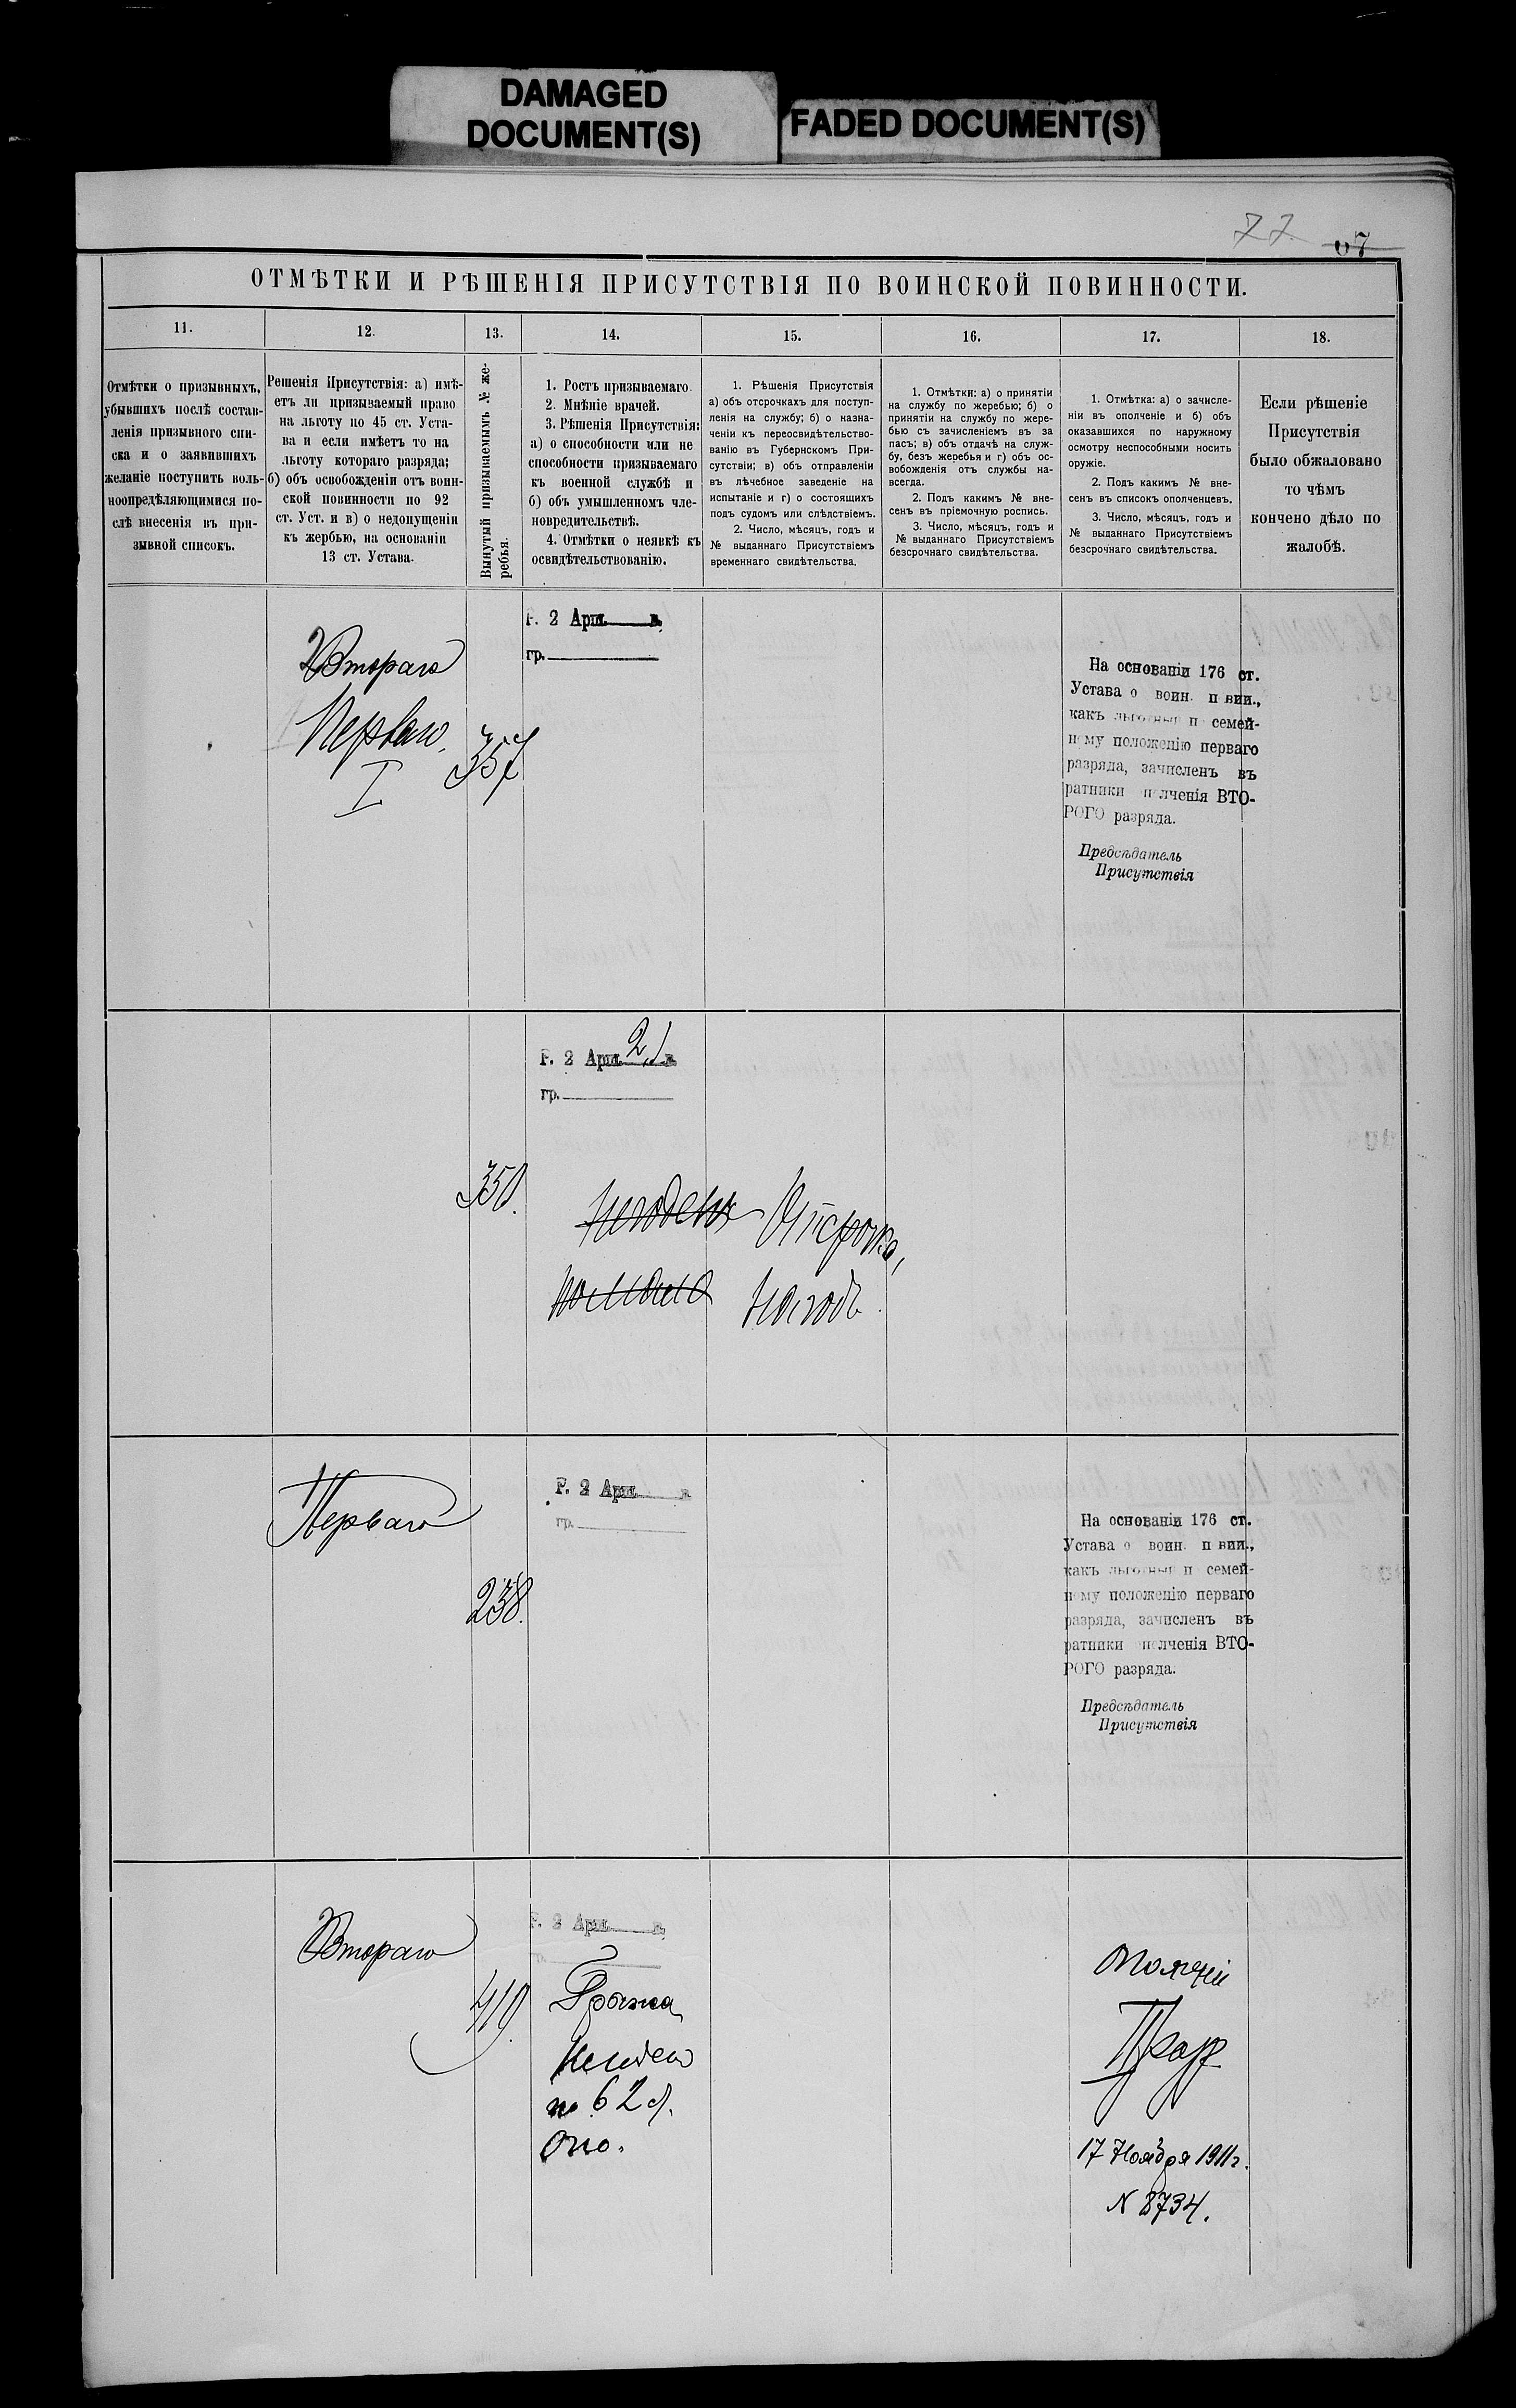 DAMAGED
DOCUMENT(S)
FADED DOCUMENT(S)
77
67
ОТМѢТКИ И РѢШЕНІЯ ПРИСУТСТВІЯ ПО ВОИНСКОЙ ПОВИННОСТИ.
11.
Отмѣтки о призывныхъ,
убывшихъ послѣ состав-
ленія призывного спи-
ска и о заявившихъ
желаніе поступить воль-
ноопредѣляющимися по-
слѣ внесенія въ при-
зывной списокъ.
12.
Решенія Присутствія: а) имѣ-
етъ ли призываемый право
на льготу по 45 ст. Уста-
ва и если имѣетъ то на
льготу котораго разряда;
б) объ освобожденіи отъ воин-
ской повинности по 92
ст. Уст. и в) о недопущеніи
къ жербью, на основаніи
13 ст. Устава.
13.
Вынутый призываемымъ № же-
ребья.
14.
1. Ростъ призываемаго.
2. Мнѣніе врачей.
3. Рѣшенія Присутствія:
а) о способности или не
способности призываемаго
къ военной службѣ и
б) объ умышленномъ чле-
новредительствѣ.
4. Отмѣтки о неявкѣ къ
освидѣтельствованію.
15.
1. Рѣшенія Присутствія
а) объ отсрочкахъ для поступ-
ленія на службу; б) о назна-
ченіи къ переосвидѣтельство-
ванію въ Губернскомъ При-
сутствіи; в) объ отправленіи
въ лѣчебное заведеніе на
испытаніе и г) о состоящихъ
подъ судомъ или слѣдствіемъ.
2. Число, мѣсяцъ, годъ и
№ выданнаго Присутствіемъ
временнаго свидѣтельства.
16.
1. Отмѣтки: а) о принятіи
на службу по жеребью; б) о
принятіи на службу по жере-
бью съ зачисленіемъ въ за
пасъ; в) объ отдачѣ на служ-
бу, безъ жеребья и г) объ ос-
вобожденія отъ службы на-
всегда.
2. Подъ какимъ № вне-
сенъ въ пріемочную роспись.
3. Число, мѣсяцъ, годъ и
№ выданнаго Присутствіемъ
безсрочнаго свидѣтельства.
17.
1. Отмѣтка: а) о зачисле-
ніи въ ополченіе и б) объ
оказавшихся по наружному
осмотру неспособными носить
оружіе.
2. Подъ какимъ № вне-
сенъ въ списокъ ополченцевъ.
3. Число, мѣсяцъ, годъ и
№ выданнаго Присутствіемъ
безсрочнаго свидѣтельства.
18.
Если рѣшеніе
Присутствія
было обжаловано
то чѣмъ
кончено дѣло по
жалобѣ.
Втораго
Перваго
I
357
Р. 2 Арш. в.
гр.
На основаніи 176 ст.
Устава о воин. п вин.,
какъ льготный п семей-
ному положенію перваго
разряда, зачисленъ въ
ратники п лченія ВТО-
РОГО разряда.
Предсѣдатель
Присутствія
350.
Р. 2 Арш. 2 в
гр.
негоденъ
Отсрочка,
на годъ
Перваго
238.
Р. 2 Арш. в
гр.
На основаніи 176 ст.
Устава о воин. п вин.,
какъ льготный п семей-
ному положенію перваго
разряда, зачисленъ въ
ратники п лченія ВТО-
РОГО разряда.
Предсѣдатель
Присутствія
Втораго
419.
Р. 2 Арш. в.
Грыжа
по 62 л.
Опо.
17 Ноября 1911 г.
N 8734.